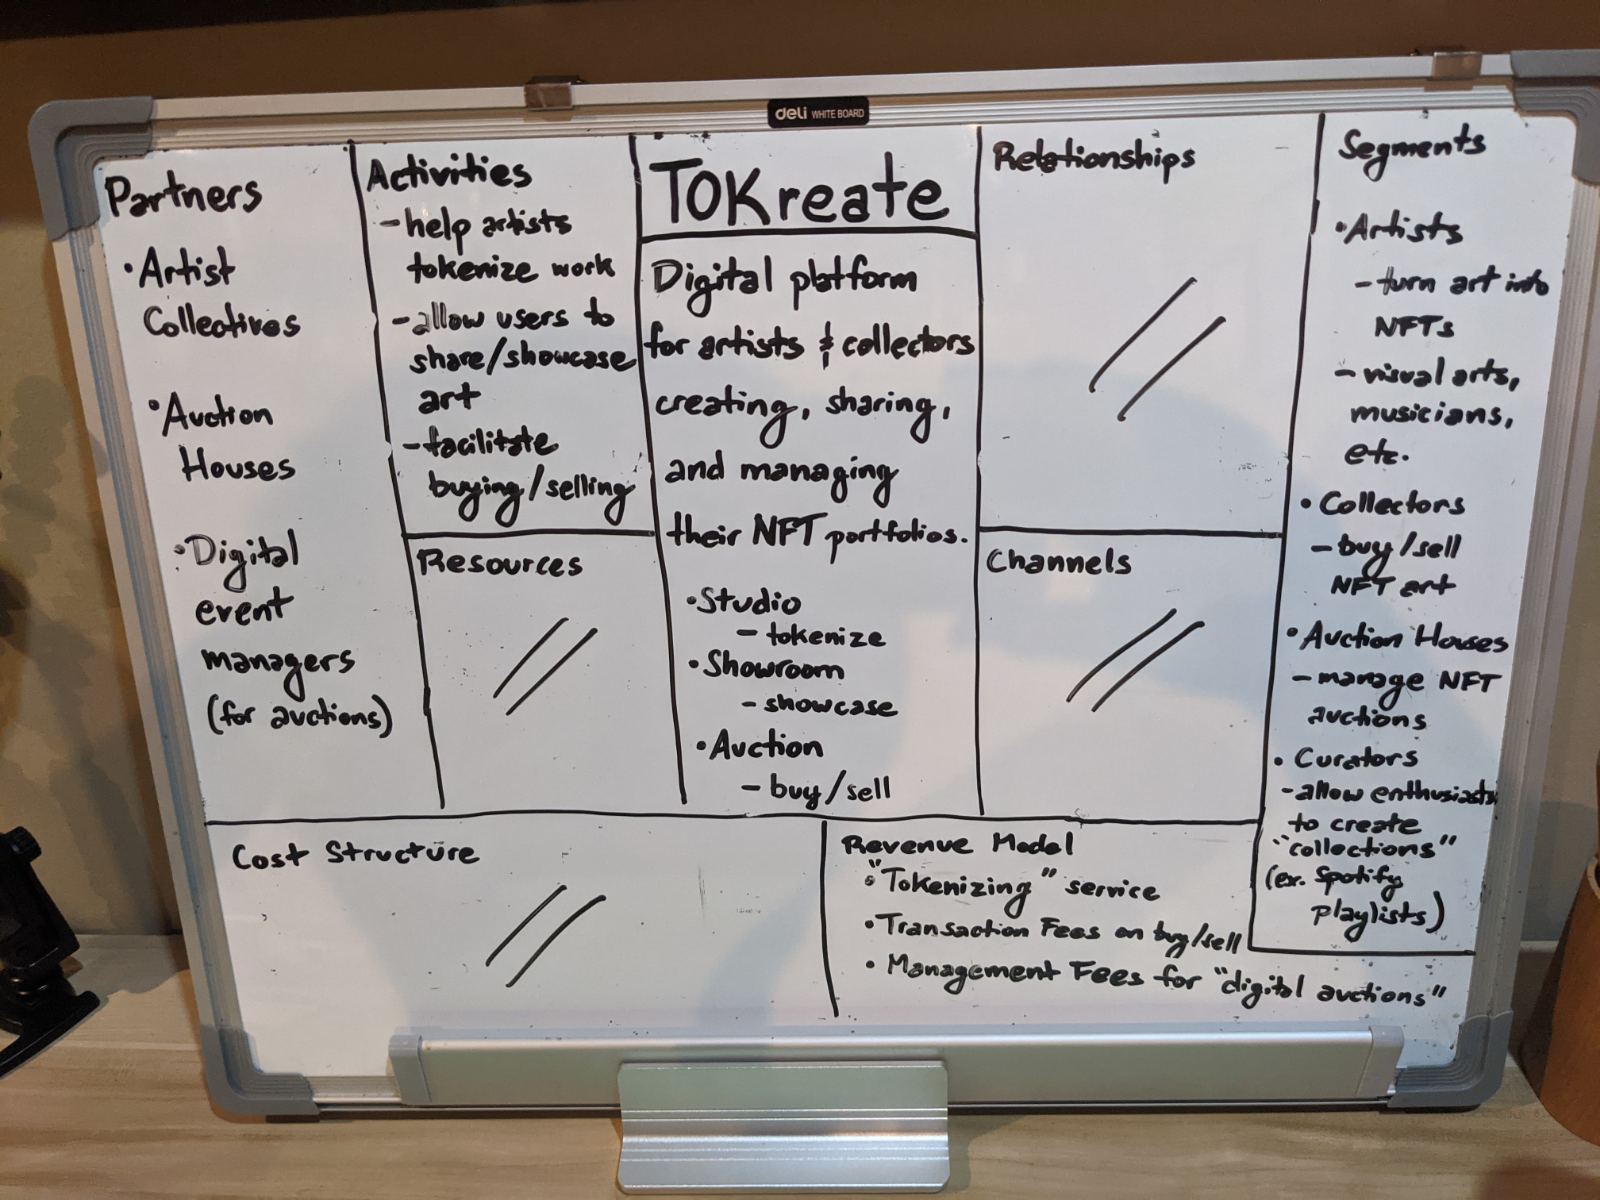 deli WHITE BOARD
Partners
•Artist
Collectives
•Auction
Houses
•Digital
event
managers
(for auctions)
Activities
-help artists
tokenize work
-allow users to
share/showcase
art
-facilitate
buying/selling
Resources
TOKreate
Digital platform
for artists & collectors
creating, sharing,
and managing
their NFT portfolios.
•Studio
- tokenize
•Showroom
- showcase
•Auction
- buy/sell
Relationships
Channels
Segments
•Artists
-turn art into
NFTs
- visual arts,
musicians,
etc.
• Collectors
-buy/sell
NFT art
•Auction Houses
-manage NFT
auctions
• Curators
-allow enthusiasts
to create
"collections"
(ex. Spotify
playlists)
Cost Structure
Revenue Model
• "Tokenizing" service
• Transaction Fees on buy/sell
• Management Fees for "digital auctions"